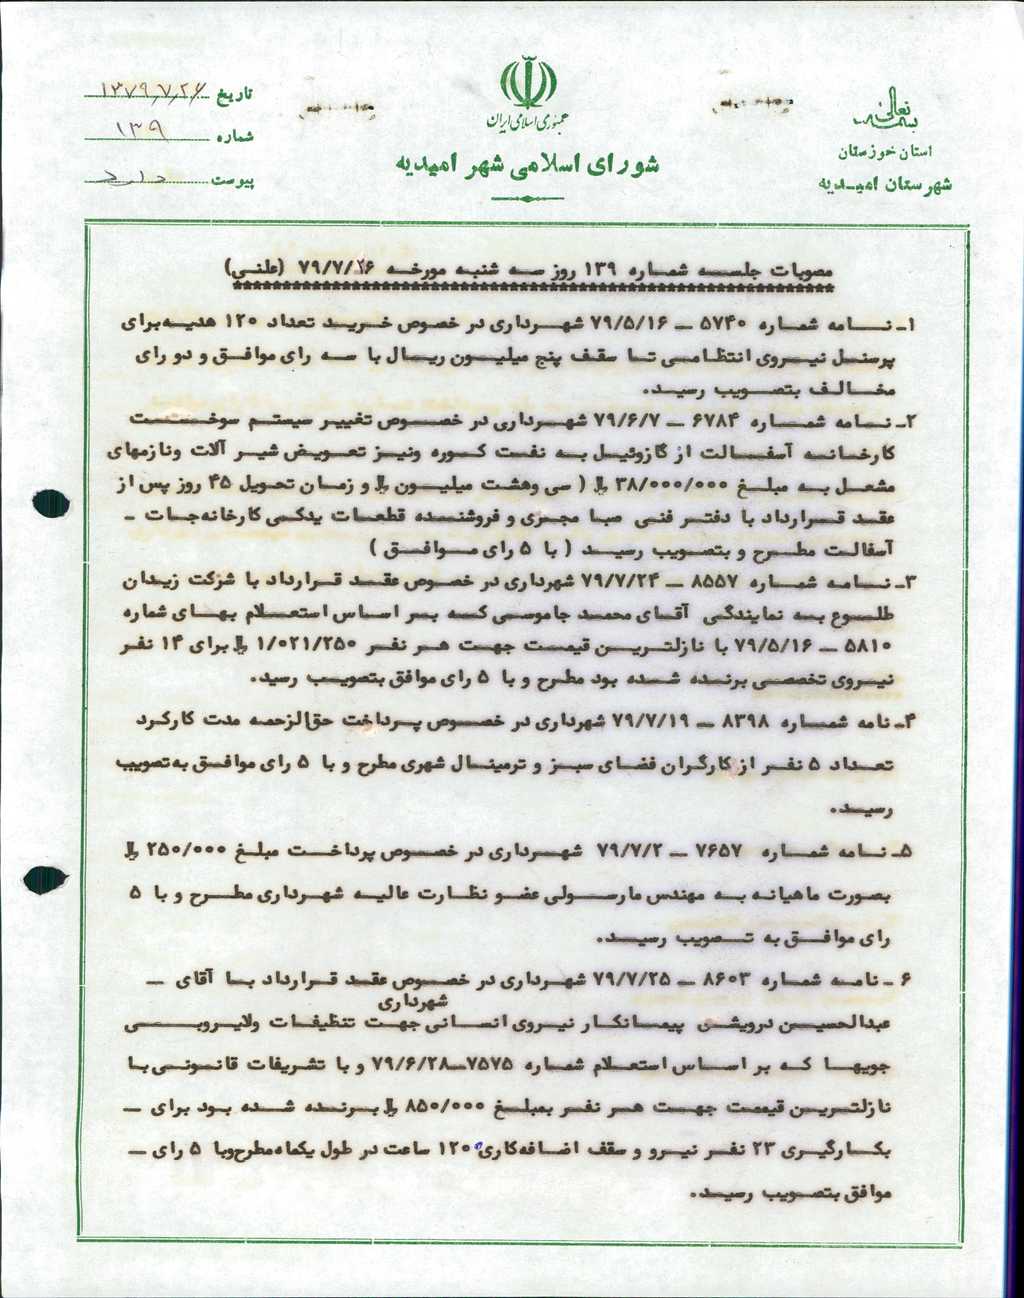 بسمه تعالی
استان خوزستان
شهرستان امیدیه
جمهوری اسلامی ایران
شورای اسلامی شهر امیدیه
تاریخ ۱۳۷۹٫۷٫۲۶
شماره ۱۳۹
پیوست دارد
مصوبات جلسه شماره ۱۳۹ روز سه شنبه مورخه ۷۹/۷/۲۶ (علنی)
۱ـ نامه شماره ۵۷۴۰ ـ ۷۹/۵/۱۶ شهرداری در خصوص خرید تعداد ۱۲۰ هدیه برای
پرسنل نیروی انتظامی تا سقف پنج میلیون ریال با سه رای موافق و دو رای
مخالف بتصویب رسید.
۲ـ نامه شماره ۶۷۸۴ ـ ۷۹/۶/۷ شهرداری در خصوص تغییر سیستم سوخت
کارخانه آسفالت از گازوئیل به نفت کوره ونیز تعویض شیر آلات ونازمهای
مشعل به مبلغ ۳۸/۰۰۰/۰۰۰ ﷼ ( سی وهشت میلیون ﷼ و زمان تحویل ۴۵ روز پس از
عقد قرارداد با دفتر فنی صبا مجری و فروشنده قطعات یدکی کارخانه‌جات ـ
آسفالت مطرح و بتصویب رسید ( با ۵ رای موافق )
۳ـ نامه شماره ۸۵۵۷ ـ ۷۹/۷/۲۴ شهرداری در خصوص عقد قرارداد با شرکت زیدان
طلوع به نمایندگی آقای محمد جاموسی که بر اساس استعلام بهای شماره
۵۸۱۰ ـ ۷۹/۵/۱۶ با نازلترین قیمت جهت هر نفر ۱/۰۲۱/۲۵۰ ﷼ برای ۱۴ نفر
نیروی تخصصی برنده شده بود مطرح و با ۵ رای موافق بتصویب رسید.
۴ـ نامه شماره ۸۳۹۸ ـ ۷۹/۷/۱۹ شهرداری در خصوص پرداخت حق‌الزحمه مدت کارکرد
تعداد ۵ نفر از کارگران فضای سبز و ترمینال شهری مطرح و با ۵ رای موافق به‌تصویب
رسید.
۵ـ نامه شماره ۷۶۵۷ ـ ۷۹/۷/۲ شهرداری در خصوص پرداخت مبلغ ۲۵۰/۰۰۰ ﷼
بصورت ماهیانه به مهندس مارسولی عضو نظارت عالیه شهرداری مطرح و با ۵
رای موافق به تصویب رسید.
۶ ـ نامه شماره ۸۶۰۳ ـ ۷۹/۷/۲۵ شهرداری در خصوص عقد قرارداد با آقای ـ
شهرداری
عبدالحسین درویشی پیمانکار نیروی انسانی جهت تنظیفات ولایروبی
جویها که بر اساس استعلام شماره ۷۵۷۵ـ۷۹/۶/۲۸ و با تشریفات قانونی با
نازلترین قیمت جهت هر نفر بمبلغ ۸۵۰/۰۰۰ ﷼ برنده شده بود برای ـ
بکارگیری ۲۳ نفر نیرو و سقف اضافه‌کاری ۱۲۰ ساعت در طول یکماه مطرح وبا ۵ رای ـ
موافق بتصویب رسید.